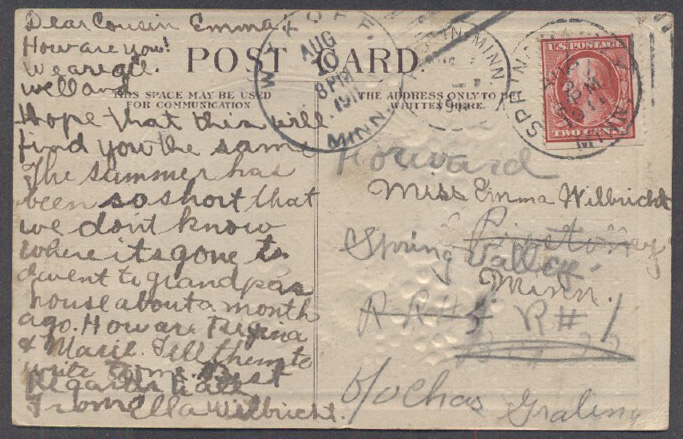 Dear Cousin Emma &
How are you!
We are all
well and
Hope that this will
find you the same
The summer has
been so short that
we don't know
where its gone to
I went to grandpas
house about a month
ago. How are Regina
& Marie. Tell them to
write to me. Best
Regards to all
From Ella Wilbricht.
POST CARD.
THIS SPACE MAY BE USED
FOR COMMUNICATION
THE ADDRESS ONLY TO BE
WRITTEN HERE.
AUG
10
8 PM
191
MINN.
MINN.
U.S. POSTAGE
TWO CENTS
Forward
Miss Emma Wilbricht
Spring Valley
Minn.
R R # R # 1
c/o Chas Graling